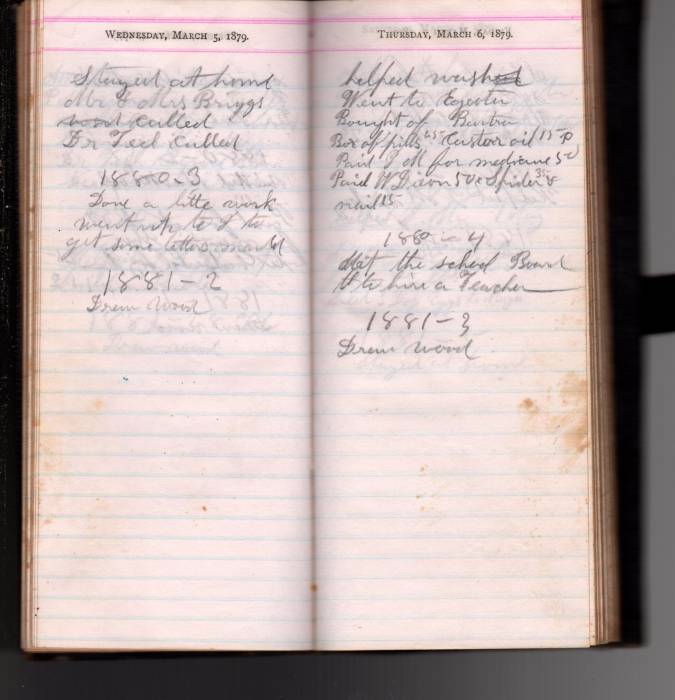 Wednesday, March 5, 1879.
Stayed at home
Mr & Mrs Briggs
called
Dr Teel called
1880-3
Done a litte work
went up to to
get some letters
1881-2
Drew Wood
Thursday, March 6, 1879.
helped wash
Went to Exester
Bought of
Box of pills 25 Castor oil 15
Paid for medicine 50
Paid W Dixon 50 Spider 35 &
nail 15
1880-4
Met the school Board
to hire a Teacher
1881-3
Drew wood